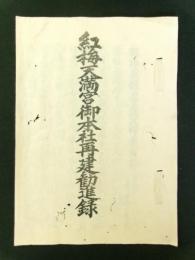 紅梅天満宮御本社再建勧進録